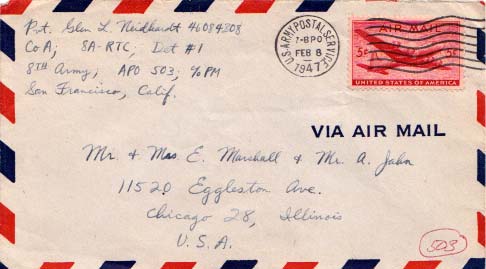 Pvt. Glen L. Neidhardt 46084808
Co A, 8A-RTC, Det #1
8TH Army, APO 503, % PM
San Francisco, Calif.
U.S. ARMY POSTAL SERVICE
FEB 8
1947
AIR MAIL
5¢
UNITED STATES OF AMERICA
VIA AIR MAIL
Mr. & Mrs. E. Marshall & Mr. A. Jahn
11520 Eggleston Ave.
Chicago 28, Illinois
U.S.A.
503